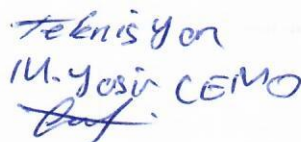 Teknisyon
M.Yasir CEMO